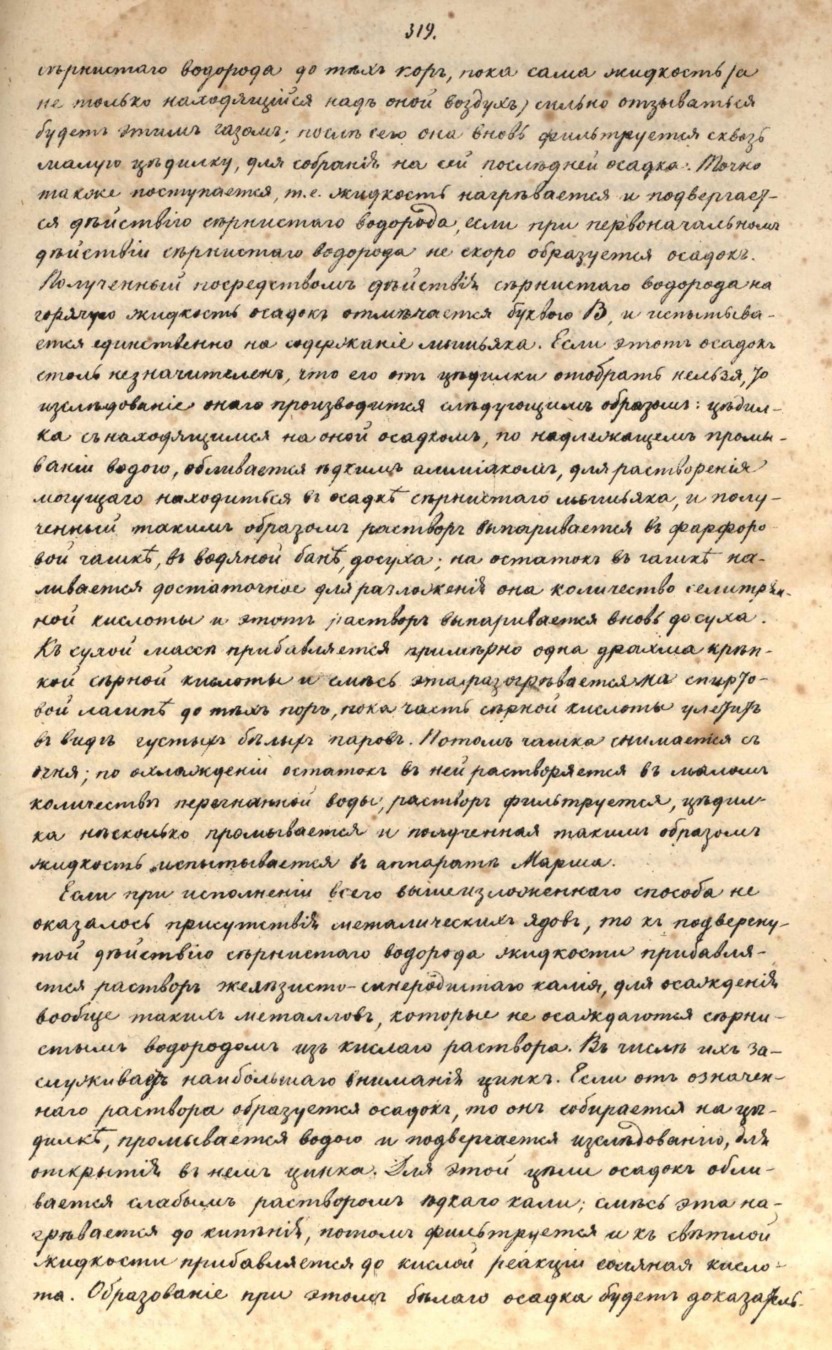 319.
сѣрнистаго водорода до тѣхъ поръ, пока сама жидкость (а
не только находящійся надъ оной воздухъ) сильно отзываться
будетъ этимъ газомъ; послѣ сего она вновь фильтруется сквозь
малую цѣдилку, для собранія на сей послѣдней осадка. Точно
также поступается, т.е. жидкость нагрѣвается и подвергает-
ся дѣйствію сѣрнистаго водорода, если при первоначальномъ
дѣйствіи сѣрнистаго водорода не скоро образуется осадокъ.
Полученный посредствомъ дѣйствія сѣрнистаго водорода на
горячую жидкость осадокъ отмѣчается буквою В, и испытыва-
ется единственно на содержаніе мышьяка. Если этотъ осадокъ
столь незначителенъ, что его отъ цѣдилки отобрать нельзя, то
изслѣдованіе онаго производится слѣдующимъ образомъ: цѣдил-
ка съ находящимся на оной осадкомъ, по надлежащемъ промы-
ваніи водою, обливается ѣдкимъ амміакомъ, для растворенія
могущаго находиться въ осадкѣ сѣрнистаго мышьяка, и полу-
ченный такимъ образомъ растворъ выпаривается въ фарфоро-
вой чашкѣ, въ водяной банѣ, досуха; на остатокъ въ чашкѣ на-
ливается достаточное для разложенія она количество селитрян-
ной кислоты и этотъ растворъ выпаривается вновь досуха.
Къ сухой массѣ прибавляется примѣрно одна драхма крѣп-
кой сѣрной кислоты и смѣсь эта разогрѣвается на спирто-
вой лампѣ до тѣхъ поръ, пока часть сѣрной кислоты улетитъ
въ видѣ густыхъ бѣлыхъ паровъ. Потомъ чашка снимается съ
огня; по охлажденіи остатокъ въ ней растворяется въ маломъ
количествѣ перегнанной воды, растворъ фильтруется, цѣдил-
ка нѣсколько промывается и полученная такимъ образомъ
жидкость испытывается въ аппаратѣ Марша.
Если при исполненіи всего вышеизложеннаго способа не
оказалось присутствія металическихъ ядовъ, то къ подверену-
той дѣйствію сѣрнистаго водорода жидкости прибавля-
ется растворъ желѣзисто-синеродистаго калія, для осажденія
вообще такихъ металловъ, которые не осаждаются сѣрни-
стымъ водородомъ изъ кислаго раствора. Въ числѣ ихъ за-
служиваетъ наибольшаго вниманія цинкъ. Если отъ означен-
наго раствора образуется осадокъ, то онъ собирается на цѣ-
дилкѣ, промывается водою и подвергается изслѣдованію, для
открытія въ немъ цинка. Для этой цѣли осадокъ обли-
вается слабымъ растворомъ ѣдкаго кали; смѣсь эта на-
грѣвается до кипѣнія, потомъ фильтруется и къ свѣтлой
жидкости прибавляется до кислой реакціи соляная кисло-
та. Образованіе при этомъ бѣлаго осадка будетъ доказатель-